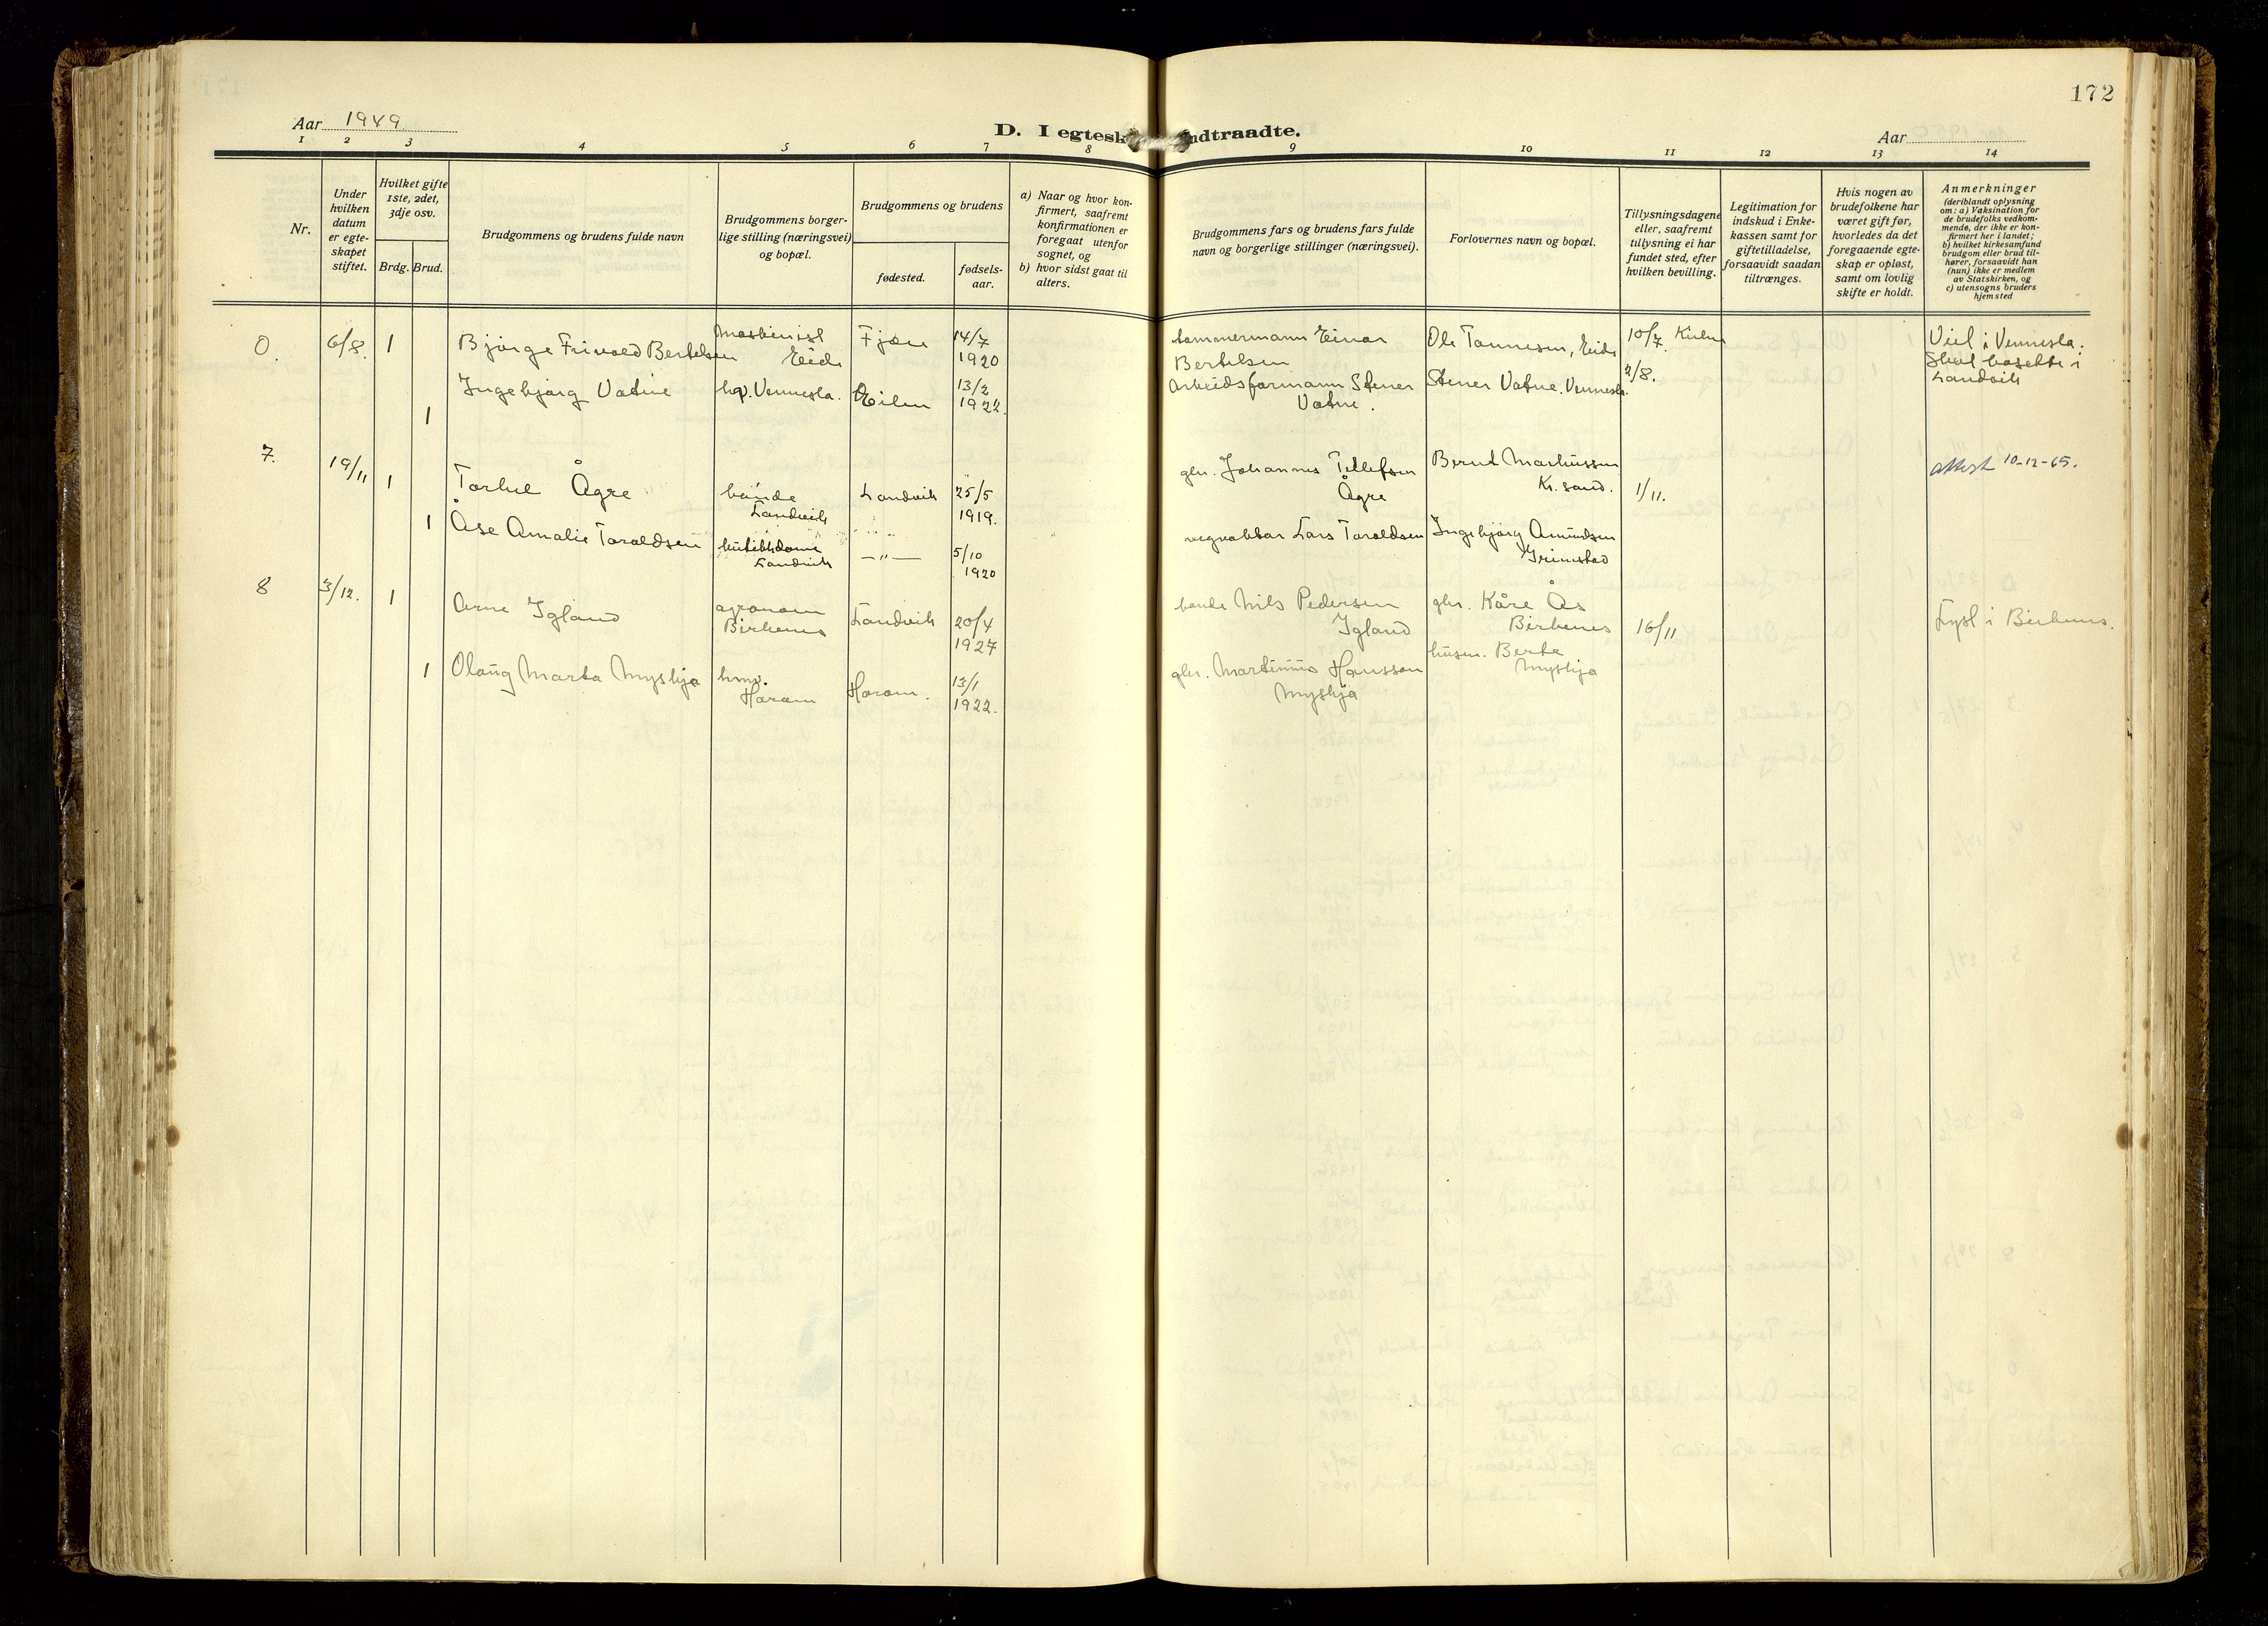 172
Aar 1949
D. I egtesk ndtraadte.
Aar
1 2 3 4 5 6 7 8 9 10 11 12 13 14
Nr.
Under
hvilken
datum
er egte-
skapet
stiftet.
Hvilket gifte
1ste, 2det,
3dje osv.
Brdg. Brud.
Brudgommens og brudens fulde navn
Brudgommens borger-
lige stilling (næringsvei)
og bopæl.
Brudgommens og brudens
fødested.
fødsels-
aar.
a) Naar og hvor kon-
firmert, saafremt
konfirmationen er
foregaat utenfor
sognet, og
b) hvor sidst gaat til
alters.
Brudgommens fars og brudens fars fulde
navn og borgerlige stillinger (næringsvei).
Forlovernes navn og bopæl.
Tillysningsdagene
eller, saafremt
tillysning ei har
fundet sted, efter
hvilken bevilling.
Legitimation for
indskud i Enke-
kassen samt for
giftetilladelse,
forsaavidt saadan
tiltrænges.
Hvis nogen av
brudefolkene har
været gift før,
hvorledes da det
foregaaende egte-
skap er opløst,
samt om lovlig
skifte er holdt.
Anmerkninger
(deriblandt oplysning
om: a) Vaksination for
de brudefolks vedkom-
mende, der ikke er kon-
firmert her i landet;
b) hvilket kirkesamfund
brudgom eller brud til-
hører, forsaavidt han
(hun) ikke er medlem
av Statskirken, og
c) utensogns bruders
hjemsted
0. 6/8. 1 Bjørge Frivold Bertelsen
Maskinist
Eide
Fjære 14/7
1920
tømmermann Einar
Bertelsen
Ole Tønnesen, Eide
10/7
Viel i Vennesla.
Skal bosette i
Landvik
1 Ingebjørg Vatne
Vennesla.
13/2
1922.
Arbeidsformann Stener
Vatne.
Stener Vatne. Vennesla.
2/8.
7. 19/11 1 Torkel Ågre
bonde
Landvik
Landvik 25/5
1919.
gbr. Johannes Tellefsen
Ågre
Bernt Markussen
Kr. sand.
1/11.
attest 10-12-65.
1 Åse Amalie Toraldsen
Landvik
—„— 5/10
1920
vegvokter Lars Toraldsen
Ingebjørg Amundsen
Grimstad
8 3/12. 1 Arne Igland
agronom
Birkenes
Landvik 20/4
1927
bonde Nils Pedersen
Igland
gbr. Kåre Ås
Birkenes
16/11
Lyst i Birkenes.
1 Olaug Marta Myskja
Haram
Haram. 13/1
1922.
gbr. Martinus Hansson
Myskja
Berta
Myskja